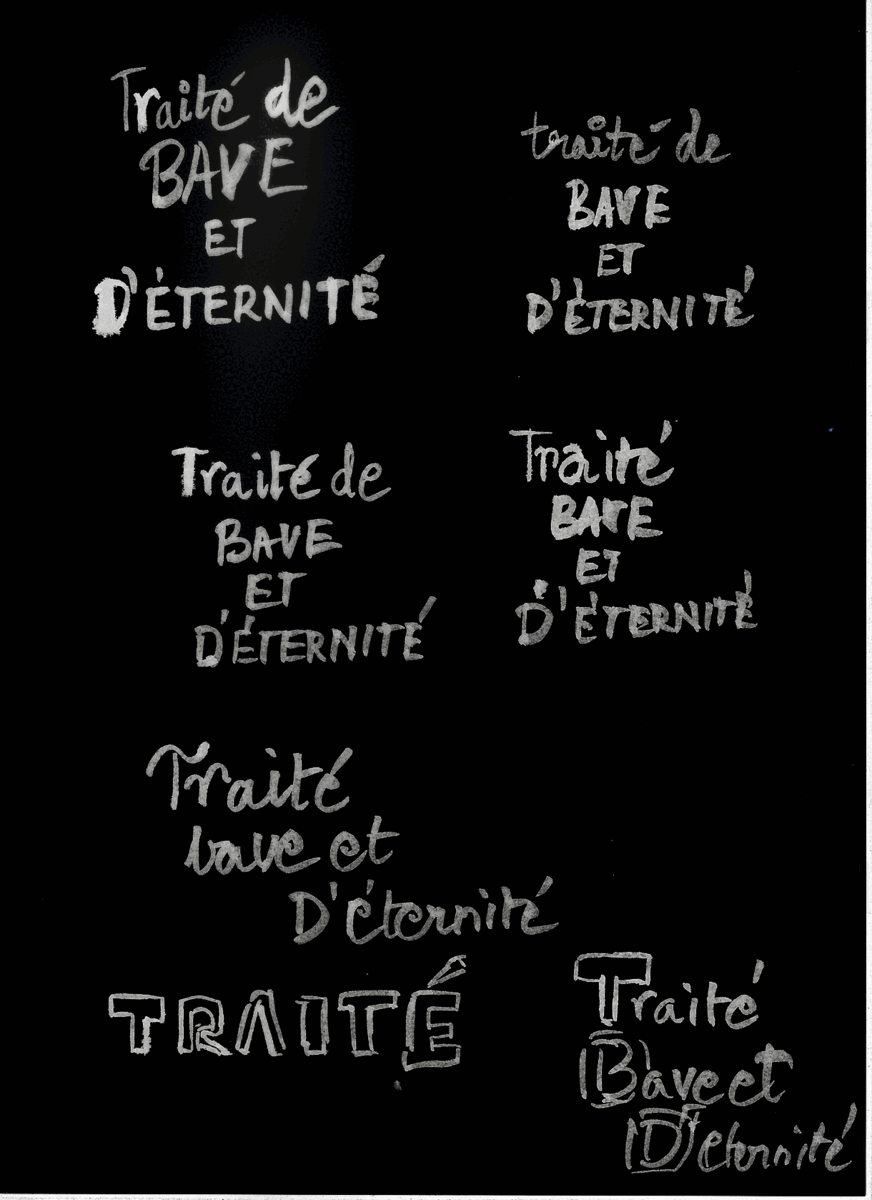 Traité de
BAVE
ET
D'ÉTERNITÉ
traité de
BAVE
ET
D'ÉTERNITÉ
Traité de
BAVE
ET
D'ÉTERNITÉ
Traité
BAVE
ET
D'ÉTERNITÉ
Traité
bave et
D'éternité
TRAITÉ
Traité
Bave et
D'éternité